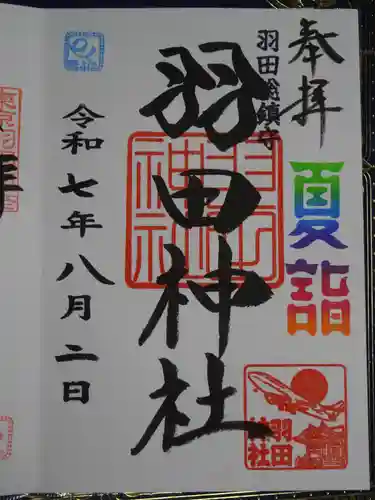 奉拝
羽田総鎮守
夏詣
羽田神社
令和七年八月二日
羽田
神社